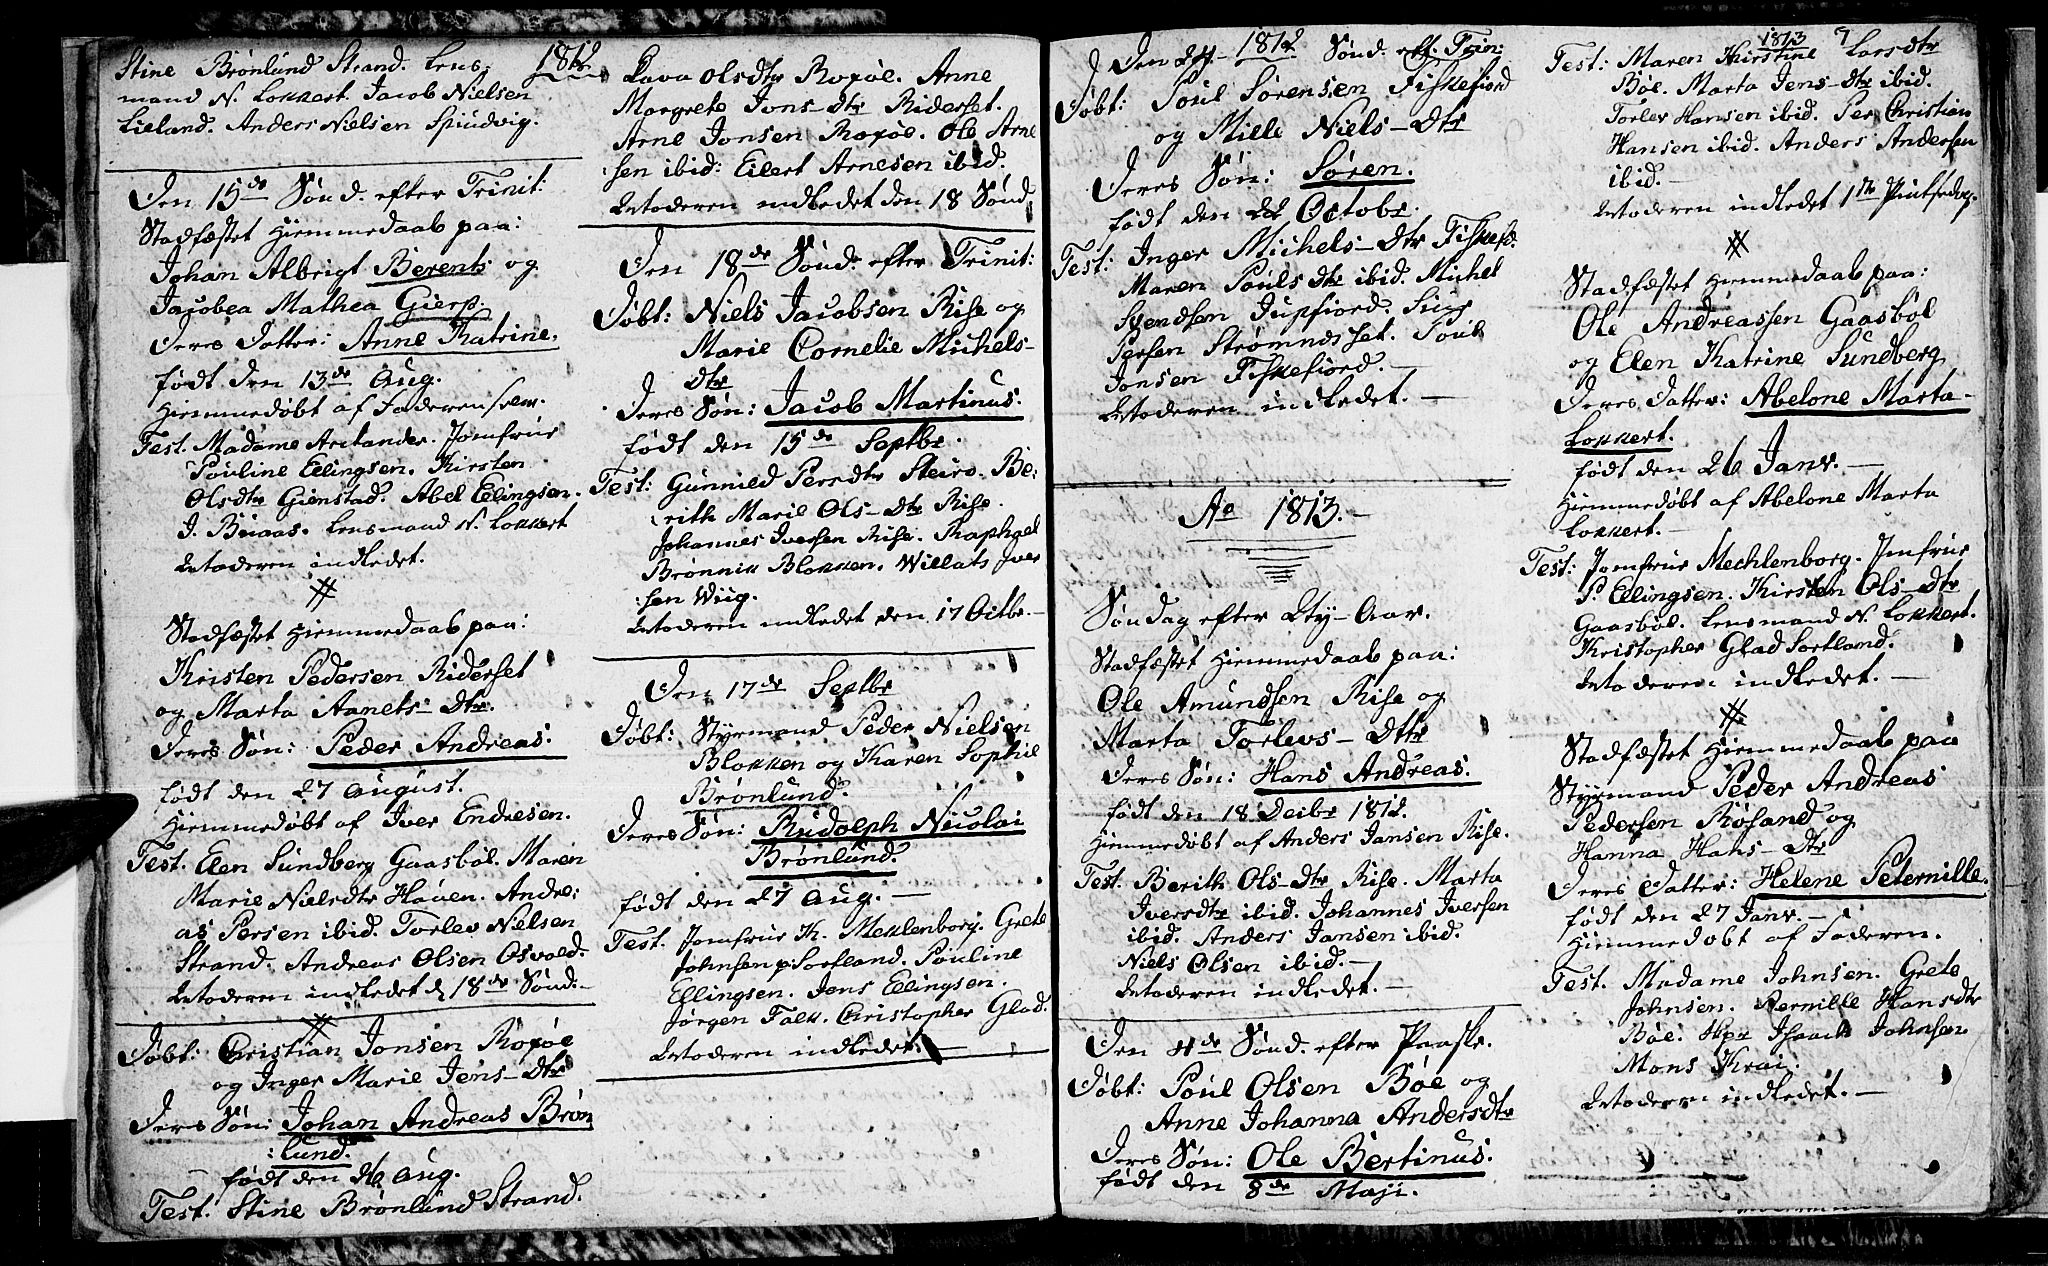 1812
Stine Brönlund Strand. Lens-
mand N. Lokkert. Jacob Nielsen
Lieland. Anders Nielsen Spindvig.
Den 15de Sønd. efter Trinit:
Stadfæstet Hiemmedaab paa:
Johan Albrigt Berents og
Jacobea Mathea Gierp.
Deres Datter: Anne Katrine.
født den 13de Aug.
Hiemmedøbt af Faderen selv.
Test. Madame Arctander. Jomfrue
Pouline Ellingsen. Kirsten
Olsdtr Gienstad. Abel Ellingsen.
J. Buaas. Lensmand N. Lokkert
Moderen indledet.
Stadfæstet Hiemmedaab paa:
Kristen Pedersen Riderset
og Marta Aanets-Dtr.
Deres Søn: Peder Andreas.
født den 27 August.
Hiemmedøbt af Iver Endresen.
Test. Elen Sundberg Gaasböl. Maren
Marie Nielsdtr Høven. Andre:
as Persen ibid. Torlev Nielsen
Strand. Andreas Olsen Osvold.
Moderen indledet d. 18de Sønd:
Døbt: Christian Jonsen Roxøe
og Inger Marie Jens-Dtr
Deres Søn: Johan Andreas Brön
:lund.
født den 26 Aug.
Test: Stine Brönlund Strand.
Lava Olsdtr Roxøe. Anne
Margrete Jons-dtr Riderset.
Arne Jonsen Roxøe. Ole Arne
sen ibid: Eilert Arnesen ibid.
Moderen indledet den 18 Sønd.
Den 18de Sønd. efter Trinit:
Døbt: Niels Jacobsen Rise og
Marie Cornelie Michels-
dtr
Deres Søn: Jacob Martinus.
født den 15de Septbr.
Test: Gunnild Persdtr Steiro. Be:
rith Marie Ols-Dtr Rise.
Johannes Iversen Rise. Raphael
Brønnik Blokken. Willats Iver
:sen Wiig.
Moderen indledet den 17 Octbr.
Den 17de Septbr
Døbt: Styrmand Peder Nielsen
Blokken og Karen Sophie
Brönlund.
Deres Søn: Rudolph Nicolai
Brönlund.
født den 27 Aug.
Test. Jomfrue K. Meklenborg. Grete
Johnsen p Sortland. Pouline
Ellingsen. Jens Ellingsen.
Jørgen Falk. Christopher Glad.
Moderen indledet.
1812
Den 24 Sønd. eft. Trin:
Døbt: Poul Sørensen Fiskefiord
og Mille Niels-Dtr
Deres Søn: Søren.
født den 22 Octobr.
Test: Inger Michels-Dtr Fiskefd.
Maren Pouls dtr ibid. Michel
Svendsen Jupfiord. Siur
Persen Strømndset. Poul
Jonsen Fiskefiord.
Moderen indledet.
Ao 1813.
Søndag efter Nty-Aar.
Stadfæstet Hiemmedaab paa:
Ole Amundsen Rise og
Marta Torlevs-Dttr
Deres Søn: Hans Andreas.
født den 18 Decbr 1812.
Hiemmedøbt af Anders Jansen Rise.
Test. Berith Ols-Dtr Rise. Marta
Iversdtr ibid. Johannes Iversen
ibid. Anders Jansen ibid.
Niels Olsen ibid.
Moderen indledet.
Den 4de Sønd. efter Paaske.
Døbt: Poul Olsen Bøe og
Anne Johanna Andersdtr
Deres Søn: Ole Bertinus.
født den 8de Maji.
1813 7
Test: Maren Kirstine Larsdtr
Bøe. Marta Jens-Dtr ibid.
Torlev Hansen ibid. Per Christian
Hansen ibid. Anders Andersen
ibid.
Moderen indledet 1ste Pintsedag.
Stadfæstet Hiemmedaab paa:
Ole Andreassen Gaasböl
og Elen Katrine Sundberg
Deres Datter: Abelone Marta-
Lokkert.
født den 26 Janv.
Hiemmedøbt af Abelone Marta
Lokkert.
Test: Jomfrue Mechlenborg. Jmfrue
P. Ellingsen. Kirsten Ols-Dtr
Gaasböl. Lensmand N. Lokkert.
Kristopher Glad Sortland.
Moderen indledet.
Stadfæstet Hiemmedaab paa
Styrmand Peder Andreas
Pedersen Røsand og
Hanna Hans-Dtr
Deres Datter: Helene Peternille.
født den 27 Janv.
Hiemmedøbt af Faderen.
Test. Madame Johnsen. Grete
Johnsen. Pernille Hansdtr
Bøe. Hpr Isaach Johnsen
Mons Krai.
Moderen indledet.